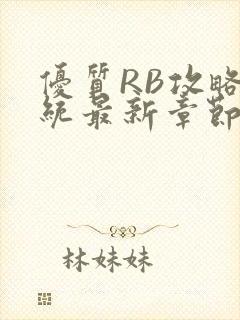 優質RB攻略
統最新章節
林妹妹